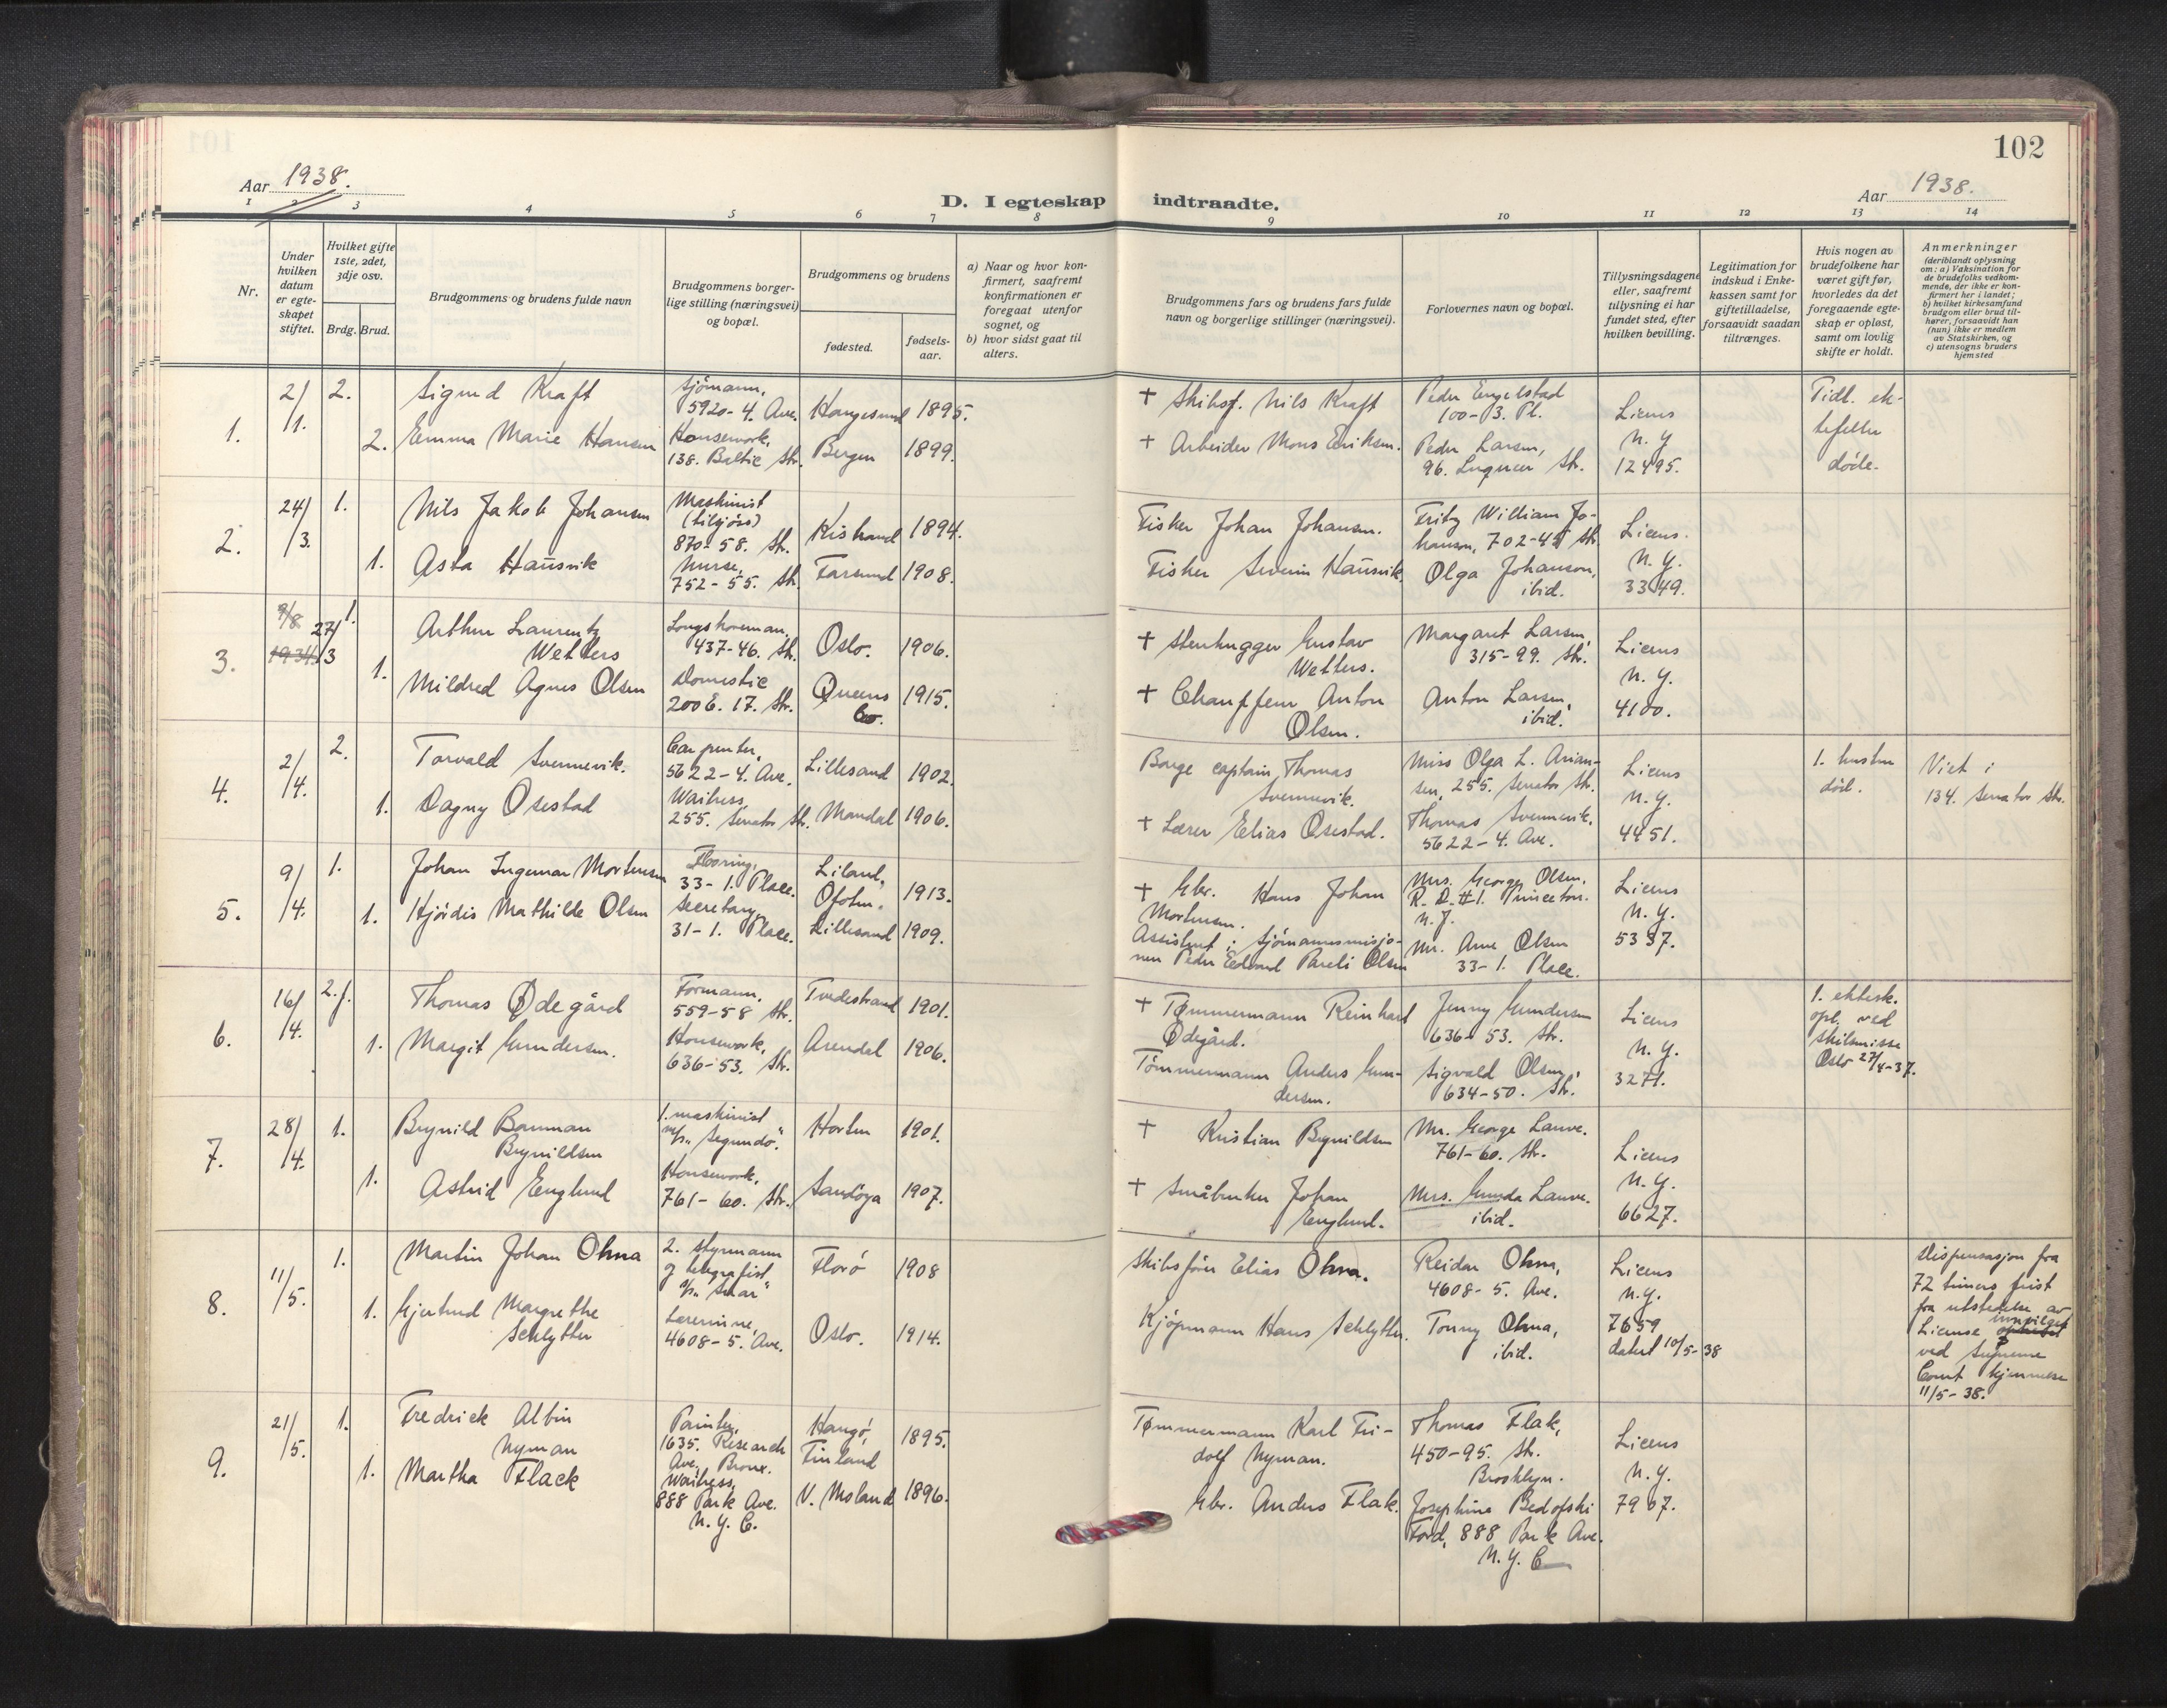 102
Aar 1938.
Aar 1938.
D. I egteskap indtraadte.
1 2 3 4 5 6 7 8 9 10 11 12 13 14
Nr.
Under hvilken datum er egteskapet stiftet.
Hvilket gifte 1ste, 2det, 3dje osv.
Brdg. Brud.
Brudgommens og brudens fulde navn
Brudgommens borgerlige stilling (næringsvei) og bopæl.
Brudgommens og brudens
fødested.
fødselsaar.
a) Naar og hvor konfirmert, saafremt konfirmationen er foregaat utenfor sognet, og
b) hvor sidst gaat til alters.
Brudgommens fars og brudens fars fulde navn og borgerlige stillinger (næringsvei).
Forlovernes navn og bopæl.
Tillysningsdagene eller, saafremt tillysning ei har fundet sted, efter hvilken bevilling.
Legitimation for indskud i Enkekassen samt for giftetilladelse, forsaavidt saadan tiltrænges.
Hvis nogen av brudefolkene har været gift før, hvorledes da det foregaaende egteskap er opløst, samt om lovlig skifte er holdt.
Anmerkninger
(deriblandt oplysning om: a) Vaksination for de brudefolks vedkommende, der ikke er konfirmert her i landet;
b) hvilket kirkesamfund brudgom eller brud tilhører, forsaavidt han (hun) ikke er medlem av Statskirken, og
c) utensogns bruders hjemsted
1. 2/1. 2. Sigurd Kraft
Sjömann, 5920-4. Ave. Haugesund 1895.
2. Emma Marie Hansen
Housework, 138. Baltic Str. Bergen 1899.
+ Skibsf. Nils Kraft
+ Arbeider Mons Eriksen.
Peder Engelstad
100-3. Pl.
Peder Larsen,
96. Luquer Str.
Licens
N.Y
12495.
Tidl. ek-
tefeller
døde.
2. 24/3. 1. Nils Jakob Johansen
Maskinist
(tilsjørs)
870-58. Str. Kistrand 1894.
1. Asta Haüsvik
Nurse,
752-55. Str. Farsund 1908.
Fisker Johan Johansen.
Fisker Severin Haüsvik.
Fritz William Jo-
hanson, 702-45 Str.
Olga Johanson,
ibid.
Licens.
N.Y.
3349.
3. 9/8 1934. 27/3 1. Arthur Laurentz
Wetters
Longshoreman,
437-46. Str. Oslo. 1906.
1. Mildred Agnes Olsen
Domestic
200 E. 17. Str. Queens
Co. 1915.
+ Stenhugger Gustav
Wetters.
+ Chauffeur Anton
Olsen.
Margaret Larsen,
315-99. Str.
Anton Larsen,
ibid.
Licens
N.Y.
4100.
4. 2/4. 2. Torvald Svennevik.
Carpenter,
5622-4. Ave. Lillesand 1902.
1. Dagny Osestad
Waitress,
255. Senator Str. Mandal 1906.
Barge captain Thomas
Svennevik.
+ Lærer Elias Osestad.
Miss Olga L. Arian-
sen, 255. Senator Str.
Thomas Svennevik.
5622-4. Ave.
Licens
N.Y.
4451.
1. hustru
död.
Viet i
134. Senator Str.
5. 9/4. 1. Johan Ingemar Mortensen
Flooring,
33-1. Place. Liland,
Ofoten. 1913.
1. Hjördis Mathilde Olsen
Secretary,
31-1. Place. Lillesand 1909.
+ Gbr. Hans Johan
Mortensen.
Assistent i Sjömannsmisjo-
nen Peder Edvard Pareli Olsen
Mrs. George Olsen,
R.D. #1. Princeton.
N.J.
Mr. Arne Olsen
33-1. Place.
Licens
N.Y.
5397.
6. 16/4. 2.f. Thomas Ødegård
Formann,
559-58 Str. Tvedestrand 1901.
1. Margit Gundersen.
Housework,
636-53. Str. Arendal 1906.
+ Tømmermann Reinhart
Ødegård.
Tömmermann Anders Gun-
dersen.
Jenny Gundersen
636-53. Str.
Sigvald Olsen,
634-50. Str.
Licens
N.Y.
3271.
1. ektesk.
opl. ved
skilsmisse
Oslo 27/4-37.
7. 28/4. 1. Brynild Bauman
Brynildsen
1. maskinist
m/s. "Segundo". Horten 1901.
1. Astrid Englund
Housework,
761-60. Str. Sandöya 1907.
+ Kristian Brynildsen
+ Småbruker Johan
Englund.
Mr. George Lauve.
761-60. Str.
Mrs. Gunda Lauve.
ibid.
Licens
N.Y.
6627.
8. 11/5. 1. Martin Johan Ohna
2. styrmann
og telegrafist
Florö 1908
1. Gjertrud Margrethe
Schlytter
Lærerinne,
4608-5. Ave. Oslo. 1914.
Skibsförer Elias Ohna.
Kjöpmann Hans Schlytter.
Reidar Ohna,
4608-5. Ave.
Tonny Ohna,
ibid.
Licens
N.Y.
7659
datert 10/5-38
Dispensasjon fra
72 timers frist
fra utstedelse av
License innvilget
ved Supreme
Court kjennelse
11/5-38.
9. 21/5. 1. Fredrick Albin
Nyman
Painter,
1635. Research
Ave. Bronx. Hangö,
Finland 1895.
1. Martha Flack
Waitress,
888 Park Ave.
N.Y.C. V. Moland 1896.
Tømmermann Karl Fri-
dolf Nyman.
Gbr. Anders Flak.
Thomas Flak,
450-95. Str.
Brooklyn.
Josephine
Ford, 888 Park Ave.
N.Y.C
Licens
N.Y.
7907.